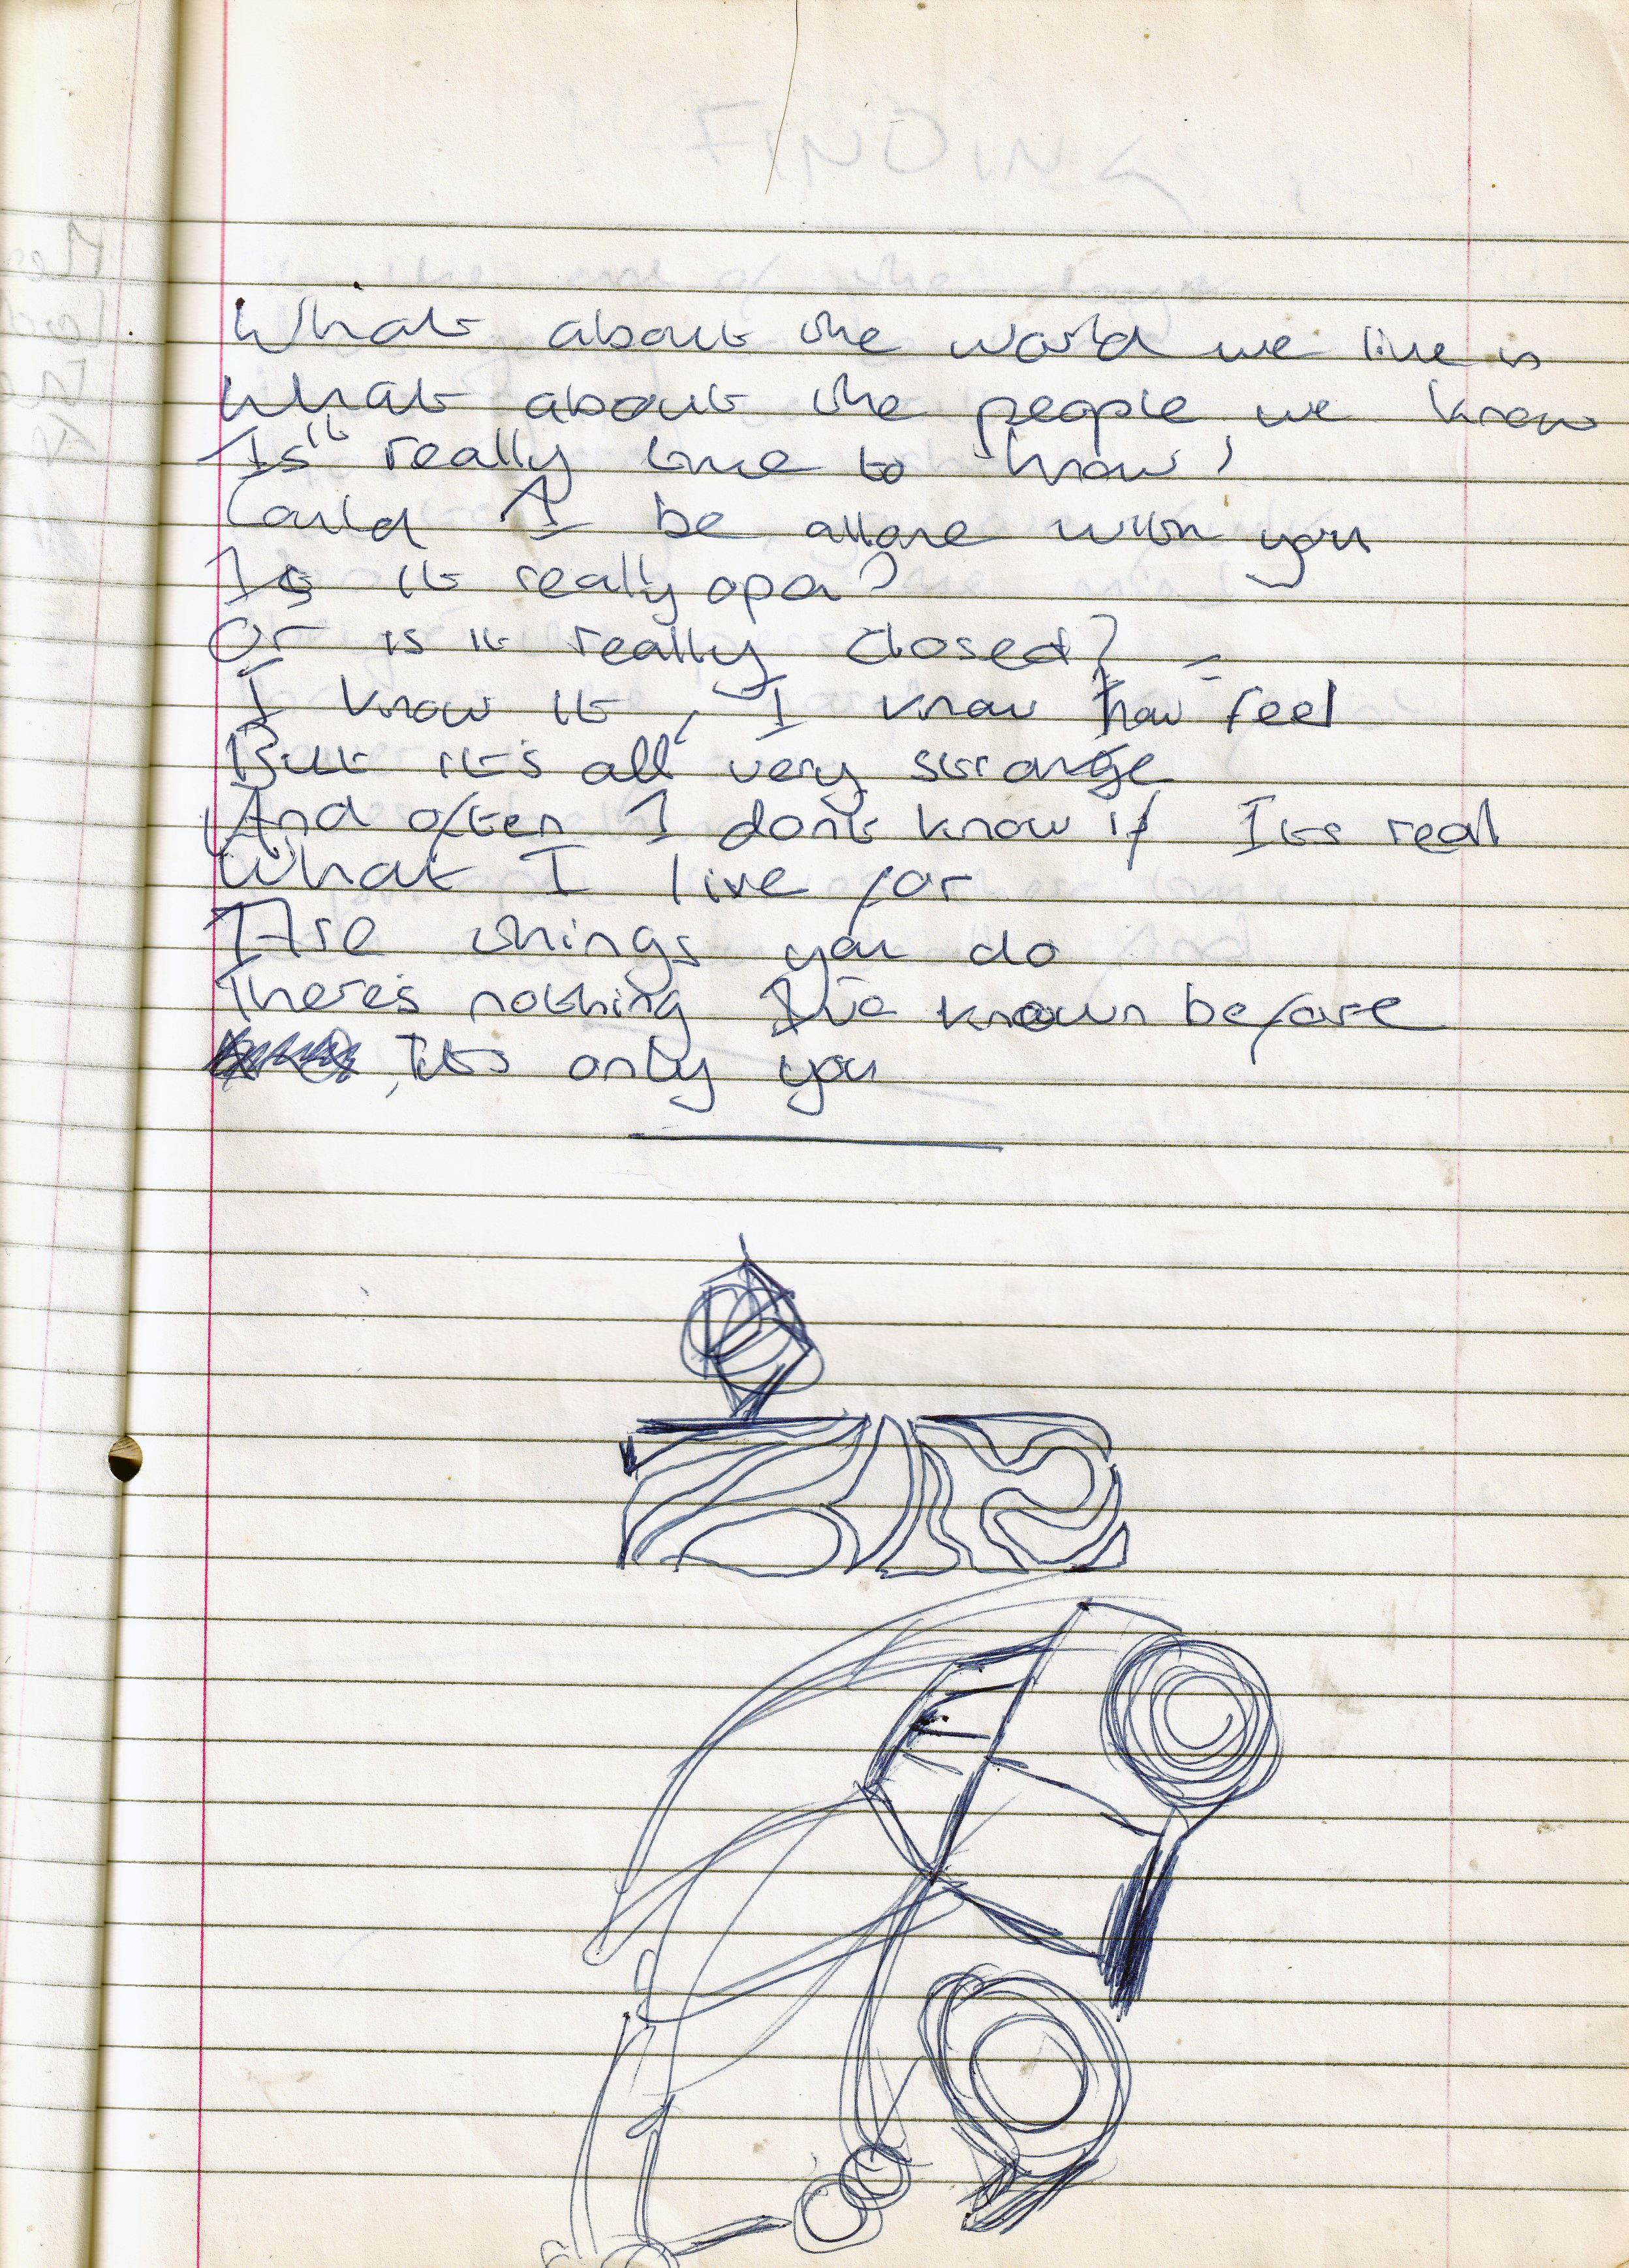 What about the world we live in
What about the people we know
Is it really to know
Could I be allone with you
Is it really open?
Or is it really closed?
I know it, I know how feel
But it's all very strange
And often I dont know if Its real
What I live for
Are things you do
There's nothing I've known before
Its only you